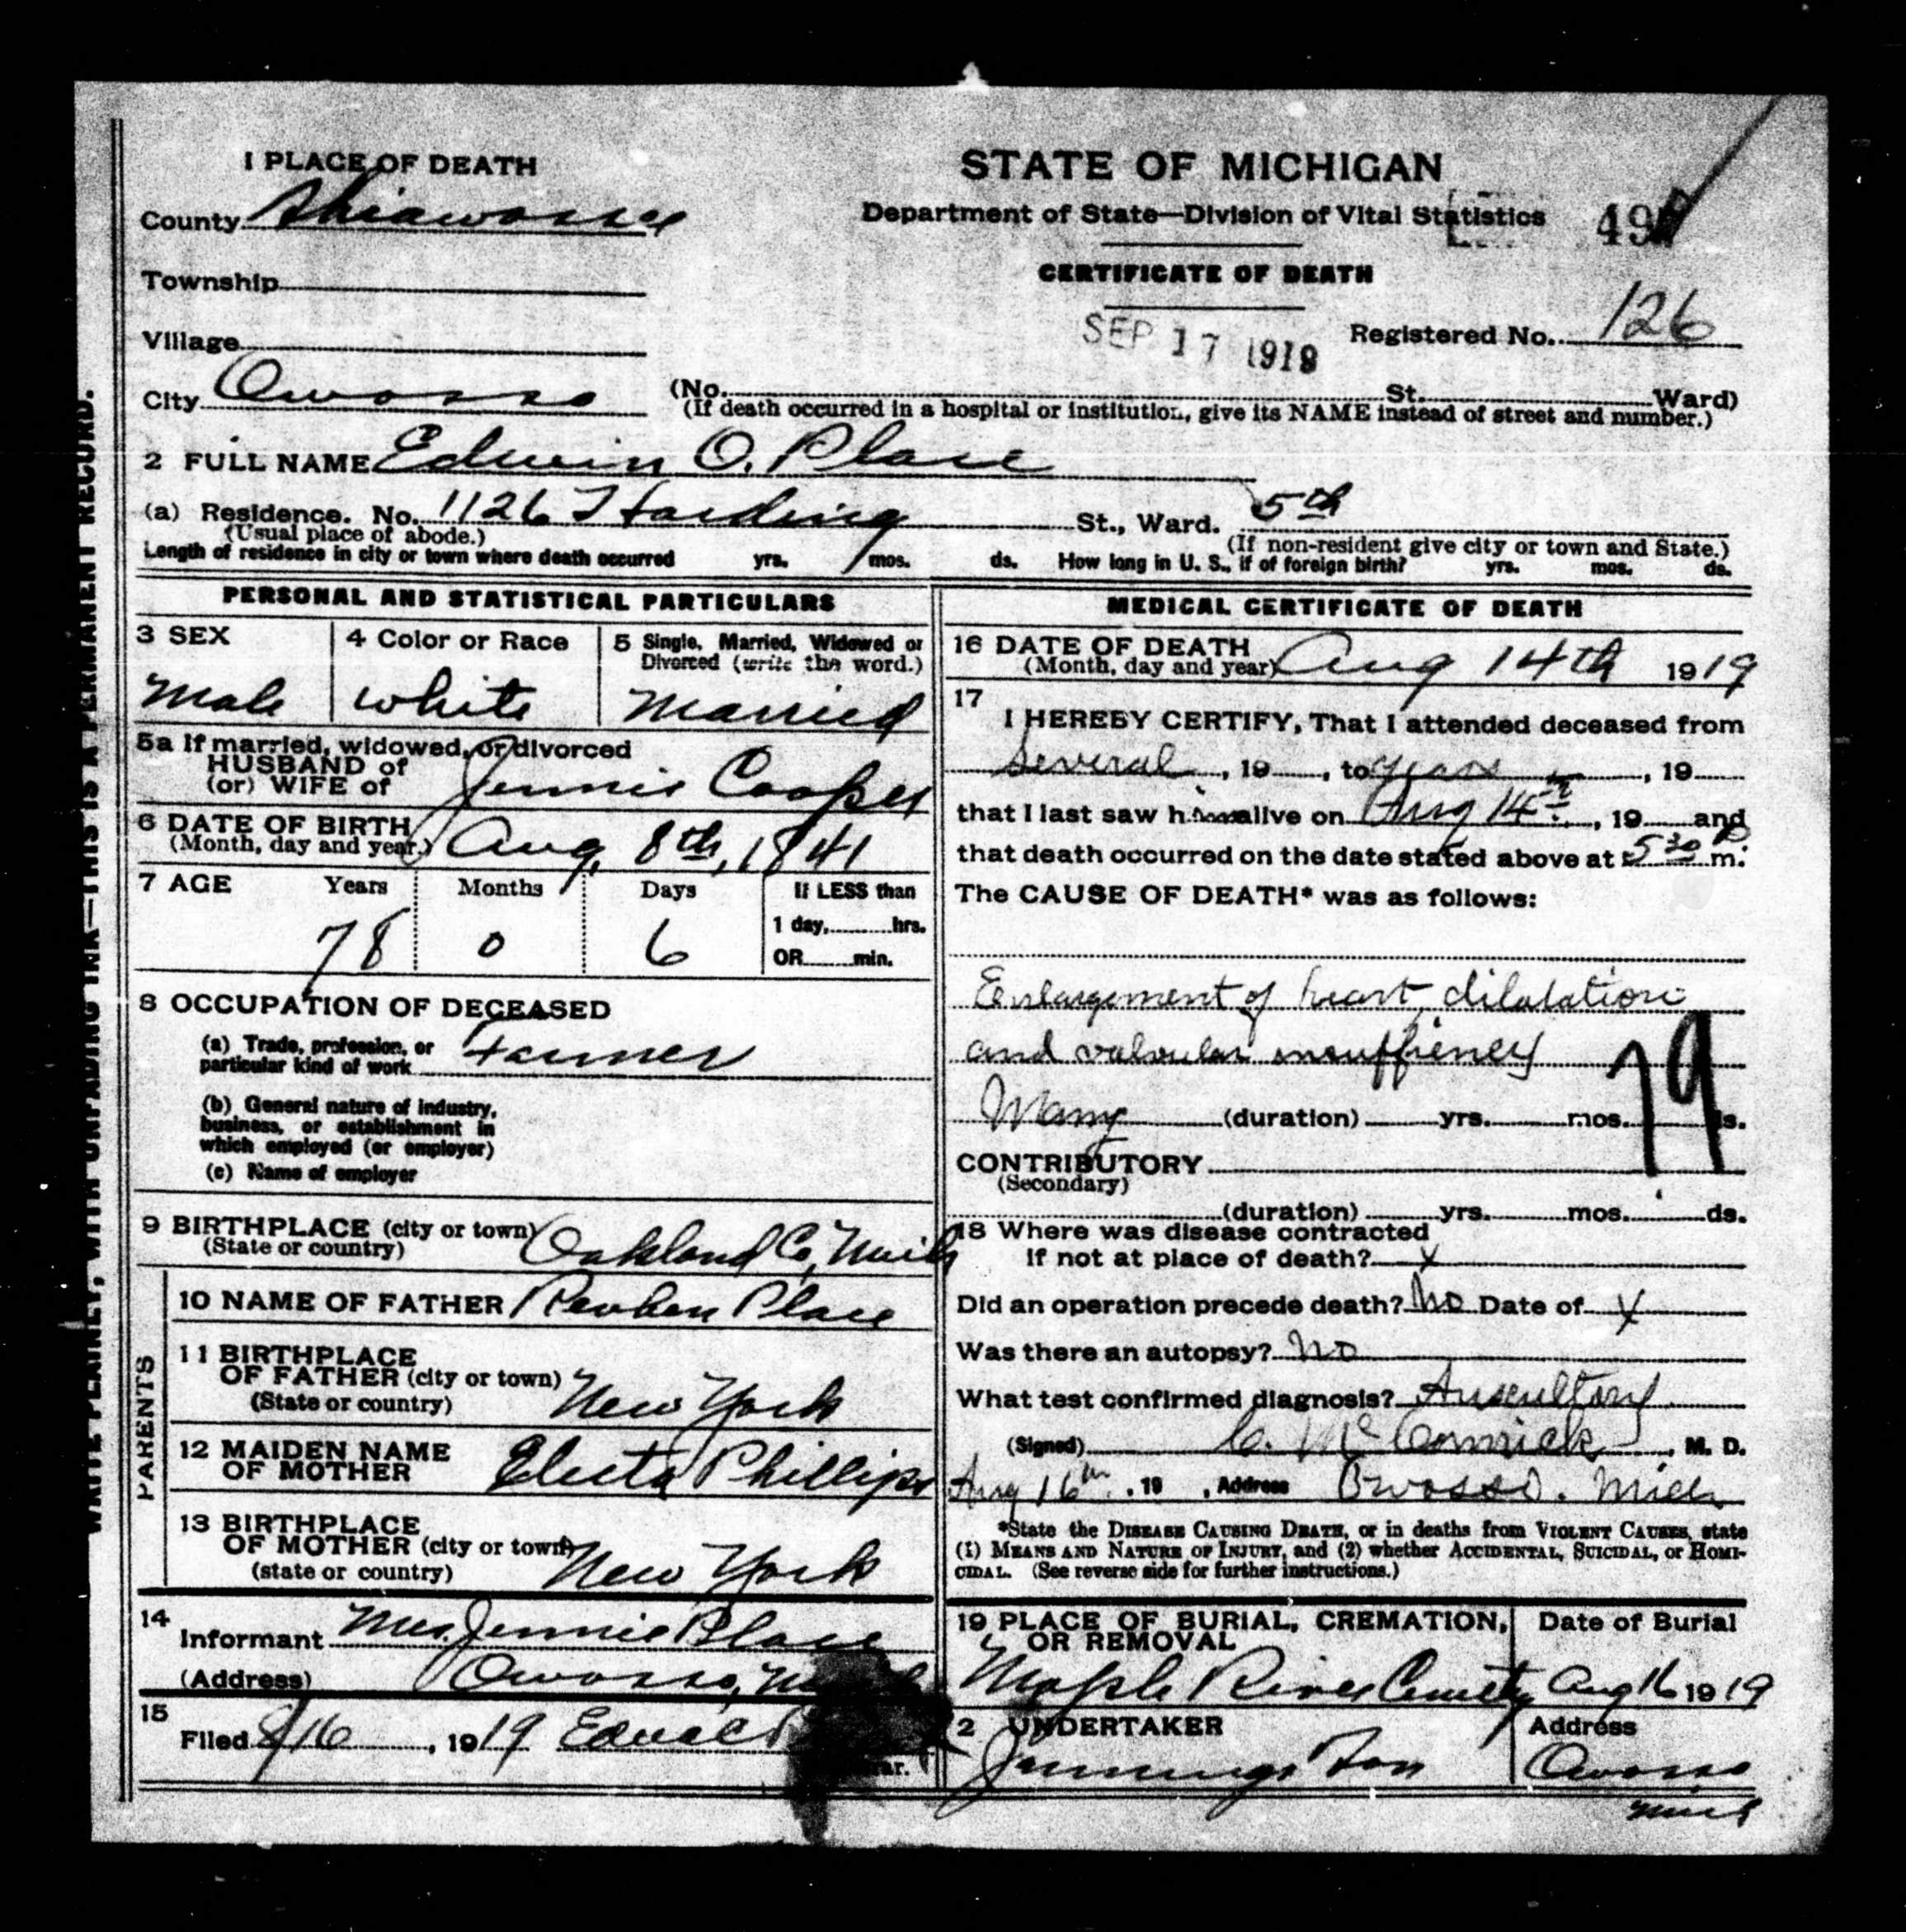 1 PLACE OF DEATH
County Shiawassee
Township
Village
City Owosso
STATE OF MICHIGAN
Department of State—Division of Vital Statistics
49
CERTIFICATE OF DEATH
SEP 17 1919
Registered No. 126
(No. St. Ward)
(If death occurred in a hospital or institution, give its NAME instead of street and number.)
2 FULL NAME Edwin O. Place
(a) Residence. No. 1126 Harding St., Ward. 5th
(Usual place of abode.) (If non-resident give city or town and State.)
Length of residence in city or town where death occurred yrs. mos. ds. How long in U. S., if of foreign birth? yrs. mos. ds.
PERSONAL AND STATISTICAL PARTICULARS
3 SEX 4 Color or Race 5 Single, Married, Widowed or
Divorced (write the word.)
Male White Married
5a If married, widowed, or divorced
HUSBAND of
(or) WIFE of Jennie Cooper
6 DATE OF BIRTH
(Month, day and year.) Aug. 8th, 1841
7 AGE Years Months Days If LESS than
1 day, hrs.
78 0 6 OR min.
8 OCCUPATION OF DECEASED
(a) Trade, profession, or
particular kind of work Farmer
(b) General nature of industry,
business, or establishment in
which employed (or employer)
(c) Name of employer
9 BIRTHPLACE (city or town)
(State or country) Oakland Co, Mich
PARENTS
10 NAME OF FATHER Reuben Place
11 BIRTHPLACE
OF FATHER (city or town)
(State or country) New York
12 MAIDEN NAME
OF MOTHER Electa Phillips
13 BIRTHPLACE
OF MOTHER (city or town)
(state or country) New York
14
Informant Mrs. Jennie Place
(Address) Owosso,
15
Filed 8/16, 1919
MEDICAL CERTIFICATE OF DEATH
16 DATE OF DEATH
(Month, day and year) Aug 14th 1919
17
I HEREBY CERTIFY, That I attended deceased from
several, 19, to years, 19
that I last saw him alive on Aug 14th, 19 and
that death occurred on the date stated above at 5 30 P m.
The CAUSE OF DEATH* was as follows:
Enlargement of heart, dilatation
and valvular insuffiency
79
Many (duration) yrs. mos. ds.
CONTRIBUTORY
(Secondary)
(duration) yrs. mos. ds.
18 Where was disease contracted
if not at place of death? x
Did an operation precede death? No Date of x
Was there an autopsy? no
What test confirmed diagnosis?
(Signed) C. McCormick, M. D.
Aug 16th, 19 , Address Owosso. Mich
*State the DISEASE CAUSING DEATH, or in deaths from VIOLENT CAUSES, state
(1) MEANS AND NATURE OF INJURY, and (2) whether ACCIDENTAL, SUICIDAL, or HOMI-
CIDAL. (See reverse side for further instructions.)
19 PLACE OF BURIAL, CREMATION,
OR REMOVAL Date of Burial
Maple River Aug 16 1919
2 UNDERTAKER Address
Jennings Son Owosso
Mich
WITH UNFADING INK—THIS IS A PERMANENT RECORD.